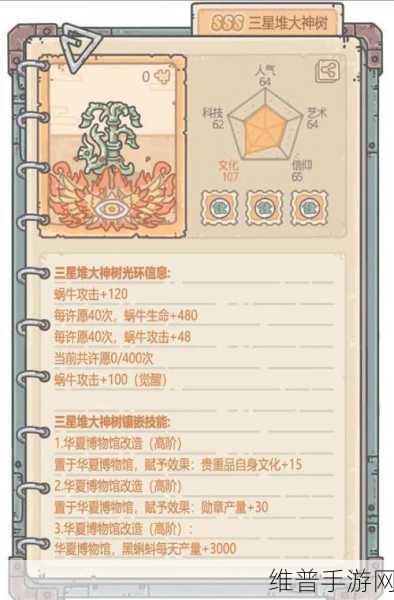 SSS 三星堆大神树
0
人气
64
科技
62
艺术
64
文化
107
信仰
65
三星堆大神树光环信息:
蜗牛攻击+120
每许愿40次，蜗牛生命+480
每许愿40次，蜗牛攻击+48
当前共许愿0/400次
蜗牛攻击+100（觉醒）
三星堆大神树镶嵌技能:
1.华夏博物馆改造（高阶）
置于华夏博物馆，赋予效果：贵重品自身文化+15
2.华夏博物馆改造（高阶）
置于华夏博物馆，赋予效果：勋章产量+30
3.华夏博物馆改造（高阶）:
华夏博物馆，黑蝌蚪每天产量+3000
维普手游网